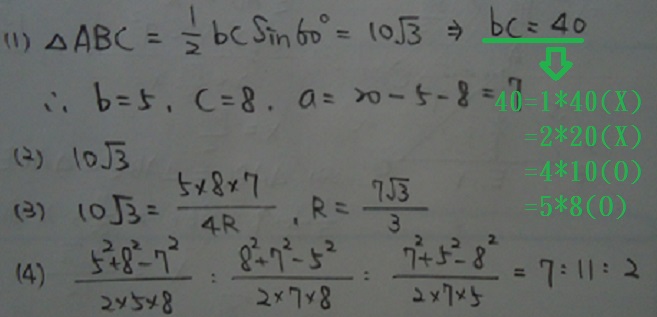 (1) △ABC = 1/2 bc Sin60° = 10√3 ⇒ bc = 40
∴ b=5, c=8, a = 20-5-8 = 7
40=1*40(X)
=2*20(X)
=4*10(O)
=5*8(O)
(2) 10√3
(3) 10√3 = 5×8×7/4R, R = 7√3/3
(4) 5²+8²-7²/2×5×8 : 8²+7²-5²/2×7×8 : 7²+5²-8²/2×7×5 = 7:11:2